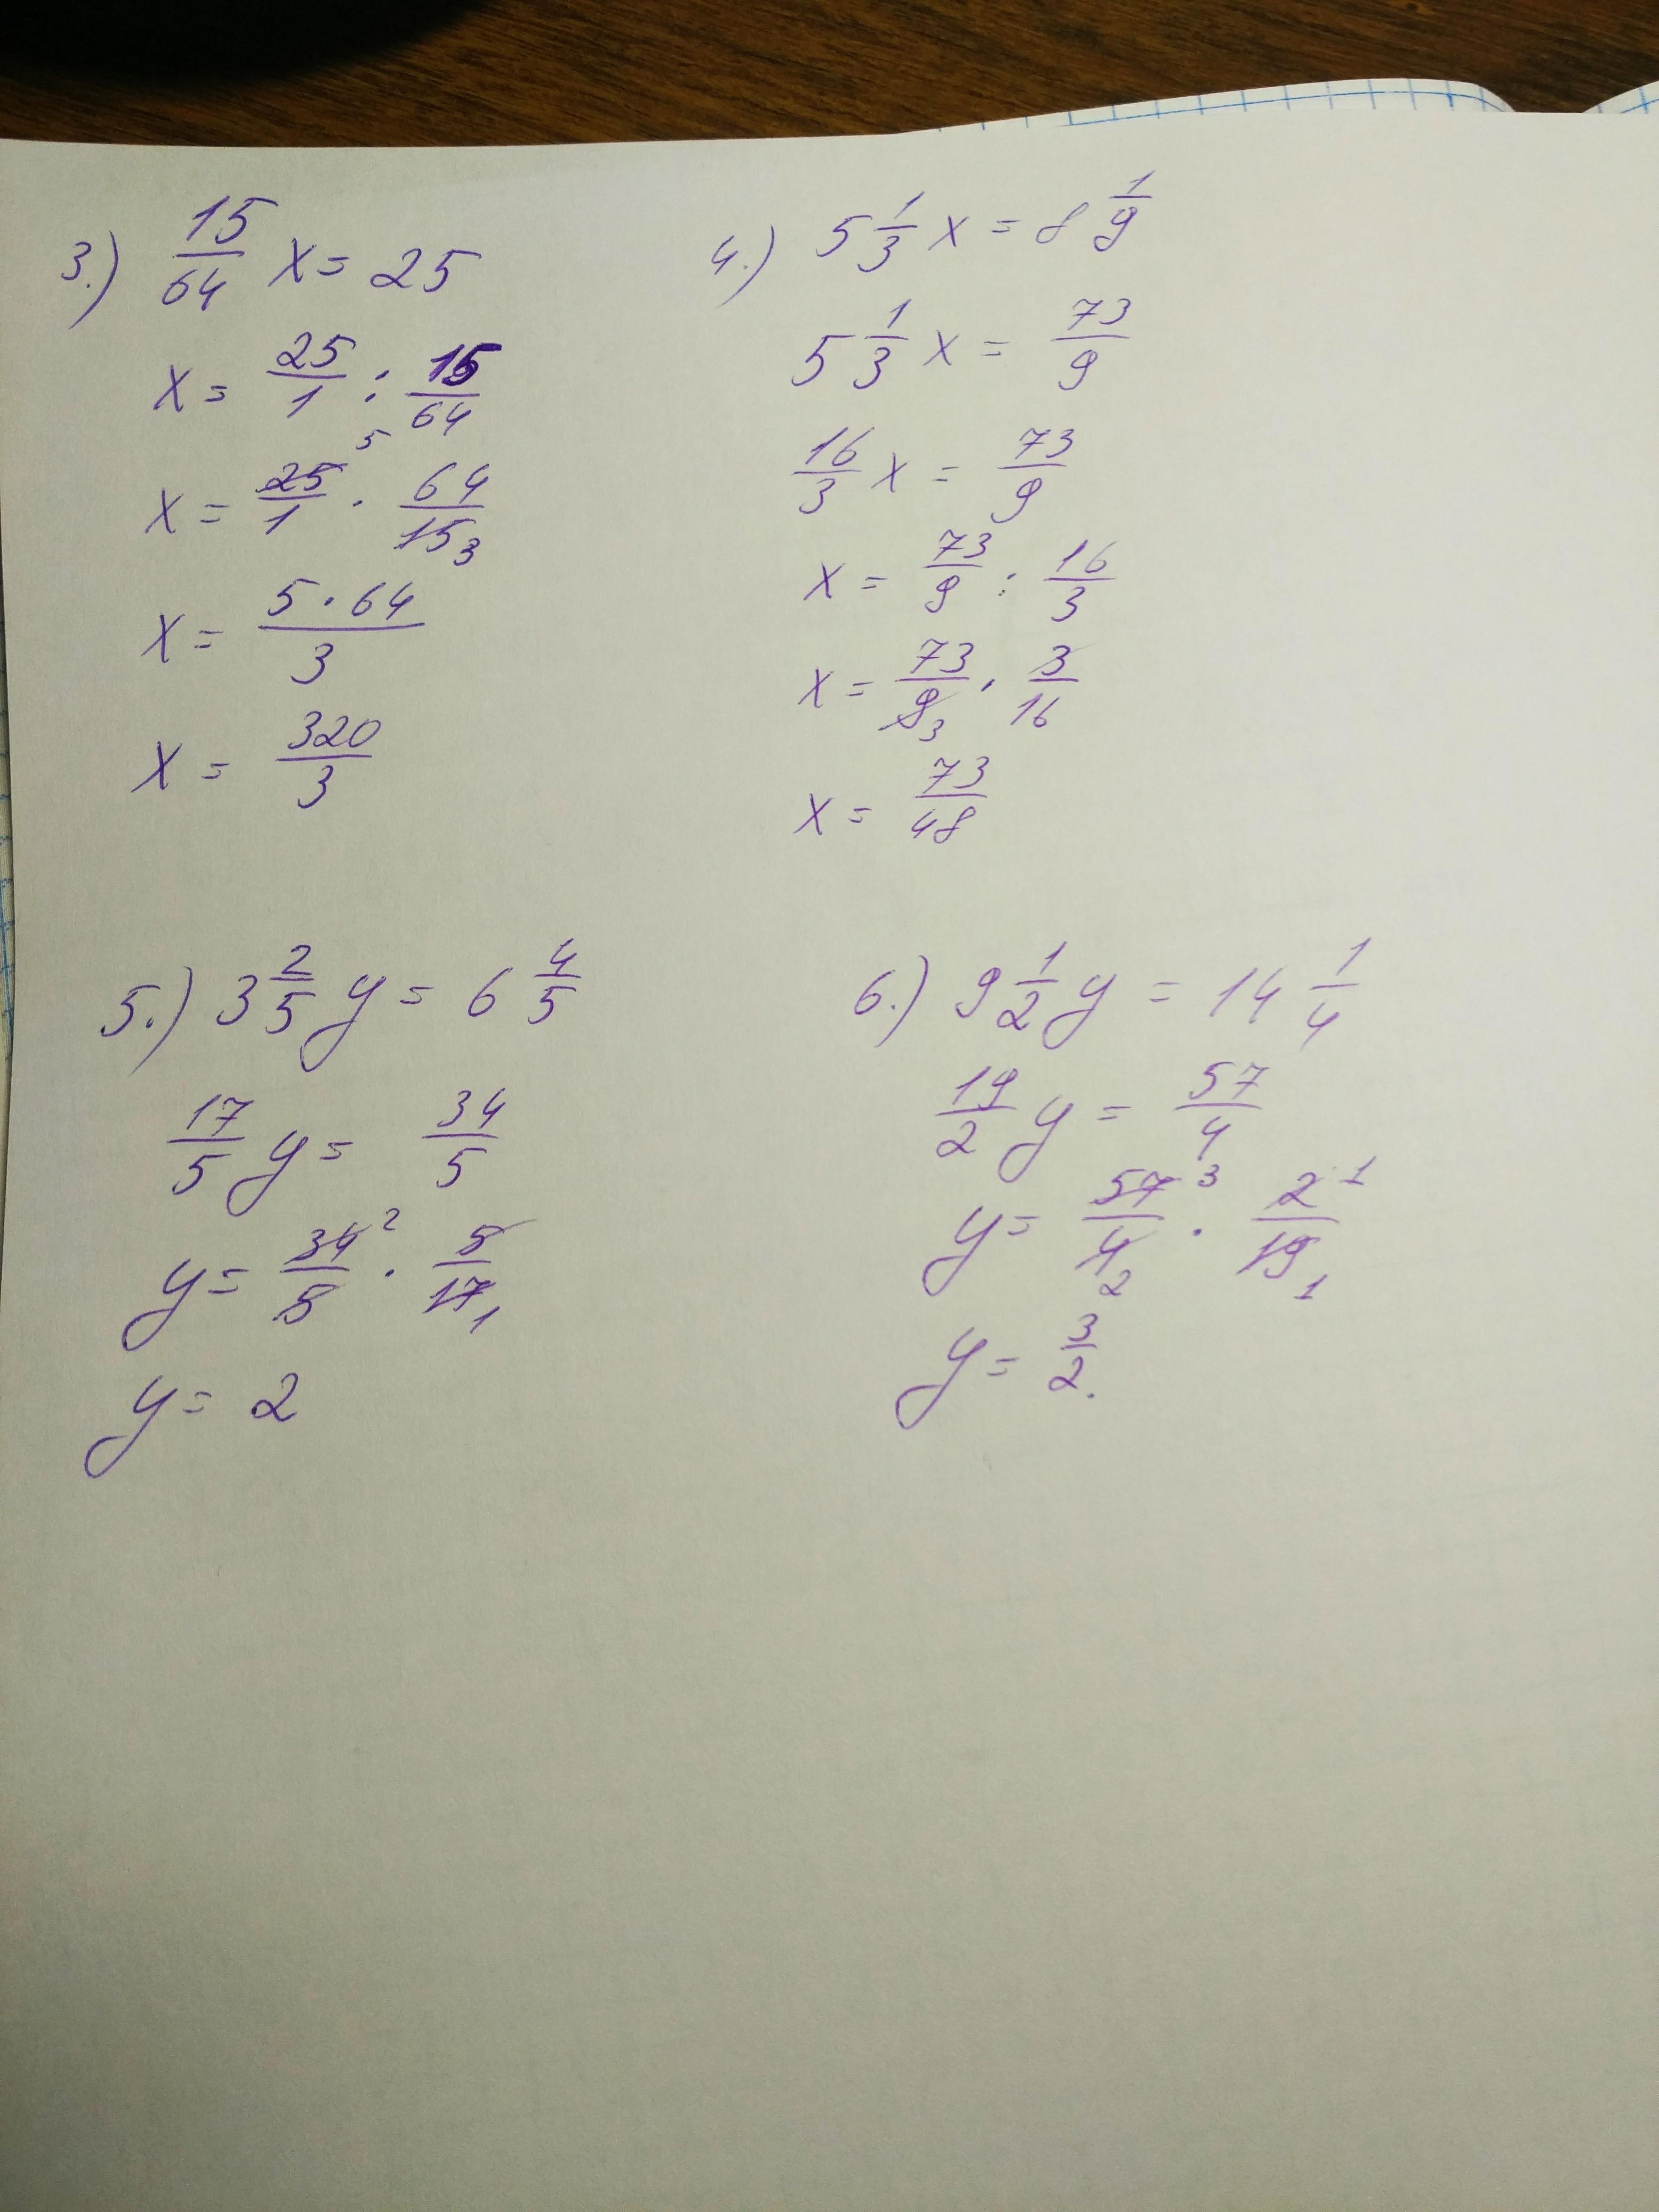 3.) 15/64 x = 25
x = 25/1 : 15/64
x = 25/1 5 · 64/15 3
x = 5·64/3
x = 320/3
4.) 5 1/3 x = 8 1/9
5 1/3 x = 73/9
16/3 x = 73/9
x = 73/9 : 16/3
x = 73/9 3 · 3/16
x = 73/48
5.) 3 2/5 y = 6 4/5
17/5 y = 34/5
y = 34 2/5 · 5/17 1
y = 2
6.) 9 1/2 y = 14 1/4
19/2 y = 57/4
y = 57 3/4 2 · 2 1/19 1
y = 3/2.